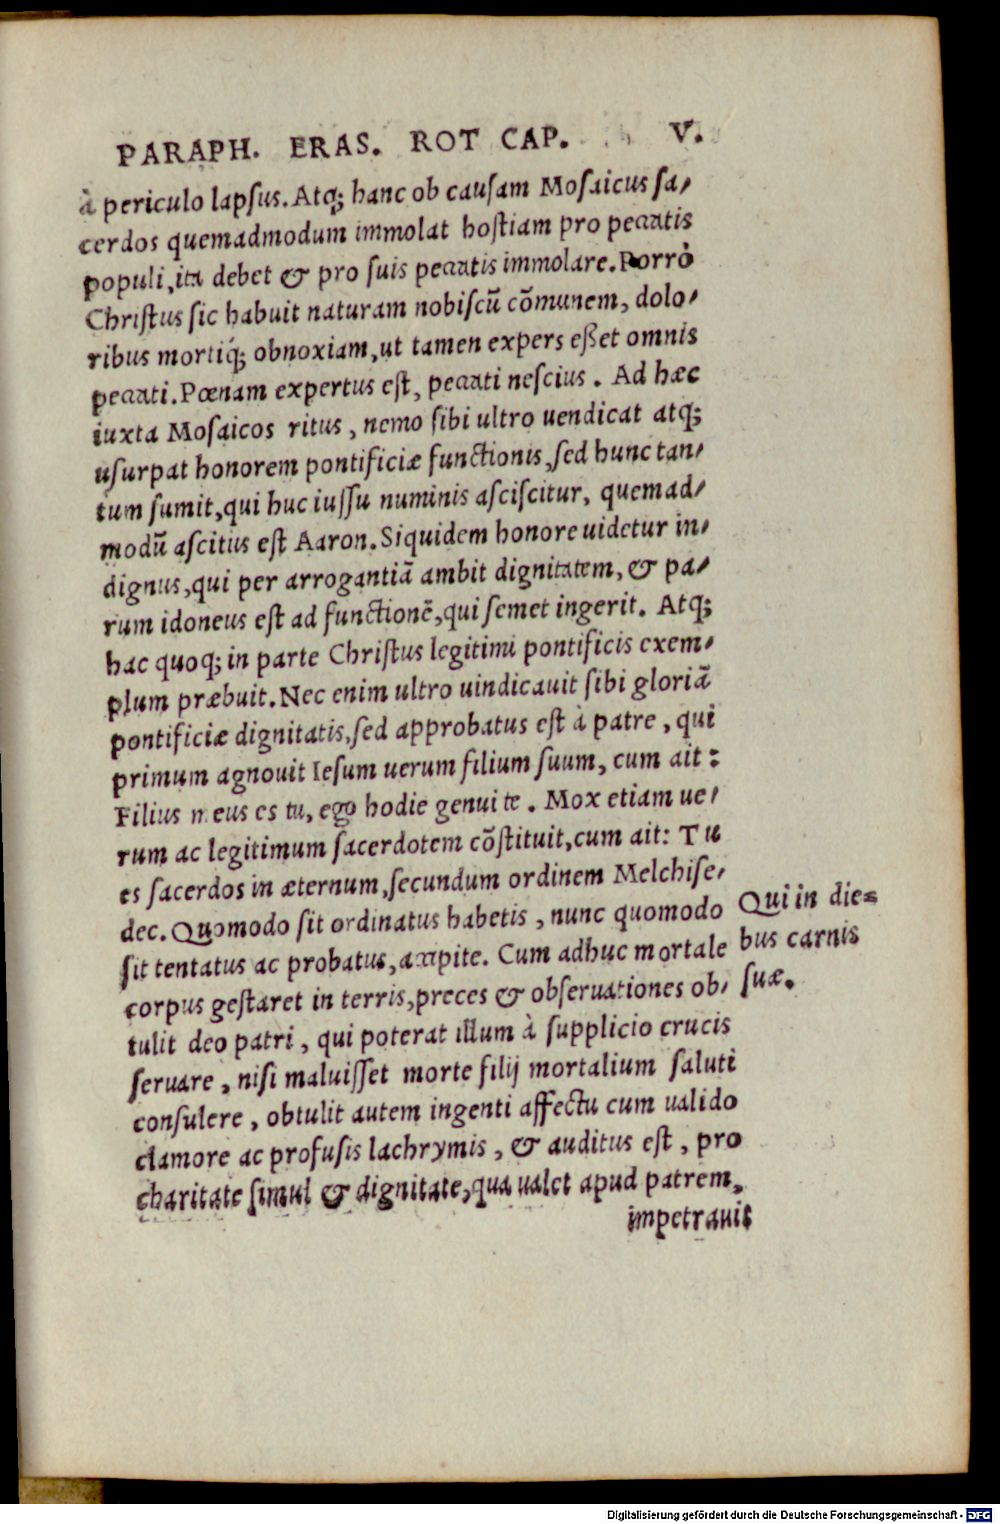 PARAPH. ERAS. ROT CAP. V.
à periculo lapsus. Atq; hanc ob causam Mosaicus sa-
cerdos quemadmodum immolat hostiam pro peccatis
populi, ita debet & pro suis peccatis immolare. Porrò
Christus sic habuit naturam nobiscū cōmunem, dolo-
ribus mortiq́; obnoxiam, ut tamen expers eßet omnis
peccati. Pœnam expertus est, peccati nescius. Ad hæc
iuxta Mosaicos ritus, nemo sibi ultro uendicat atq;
usurpat honorem pontificiæ functionis, sed hunc tan-
tum sumit, qui huc iussu numinis asciscitur, quemad-
modū ascitus est Aaron. Siquidem honore uidetur in-
dignus, qui per arrogantiā ambit dignitatem, & pa-
rum idoneus est ad functionē, qui semet ingerit. Atq;
hac quoq; in parte Christus legitimi pontificis exem-
plum præbuit. Nec enim ultro uindicauit sibi gloriā
pontificiæ dignitatis, sed approbatus est à patre, qui
primum agnouit Iesum uerum filium suum, cum ait:
Filius meus es tu, ego hodie genui te. Mox etiam ue-
rum ac legitimum sacerdotem cōstituit, cum ait: Tu
es sacerdos in æternum, secundum ordinem Melchise-
dec. Quomodo sit ordinatus habetis, nunc quomodo
sit tentatus ac probatus, accipite. Cum adhuc mortale
corpus gestaret in terris, preces & obseruationes ob-
tulit deo patri, qui poterat illum à supplicio crucis
seruare, nisi maluisset morte filij mortalium saluti
consulere, obtulit autem ingenti affectu cum ualido
clamore ac profusis lachrymis, & auditus est, pro
charitate simul & dignitate, qua ualet apud patrem,
impetrauit
Qui in die=
bus carnis
suæ.
Digitalisierung gefördert durch die Deutsche Forschungsgemeinschaft - DFG